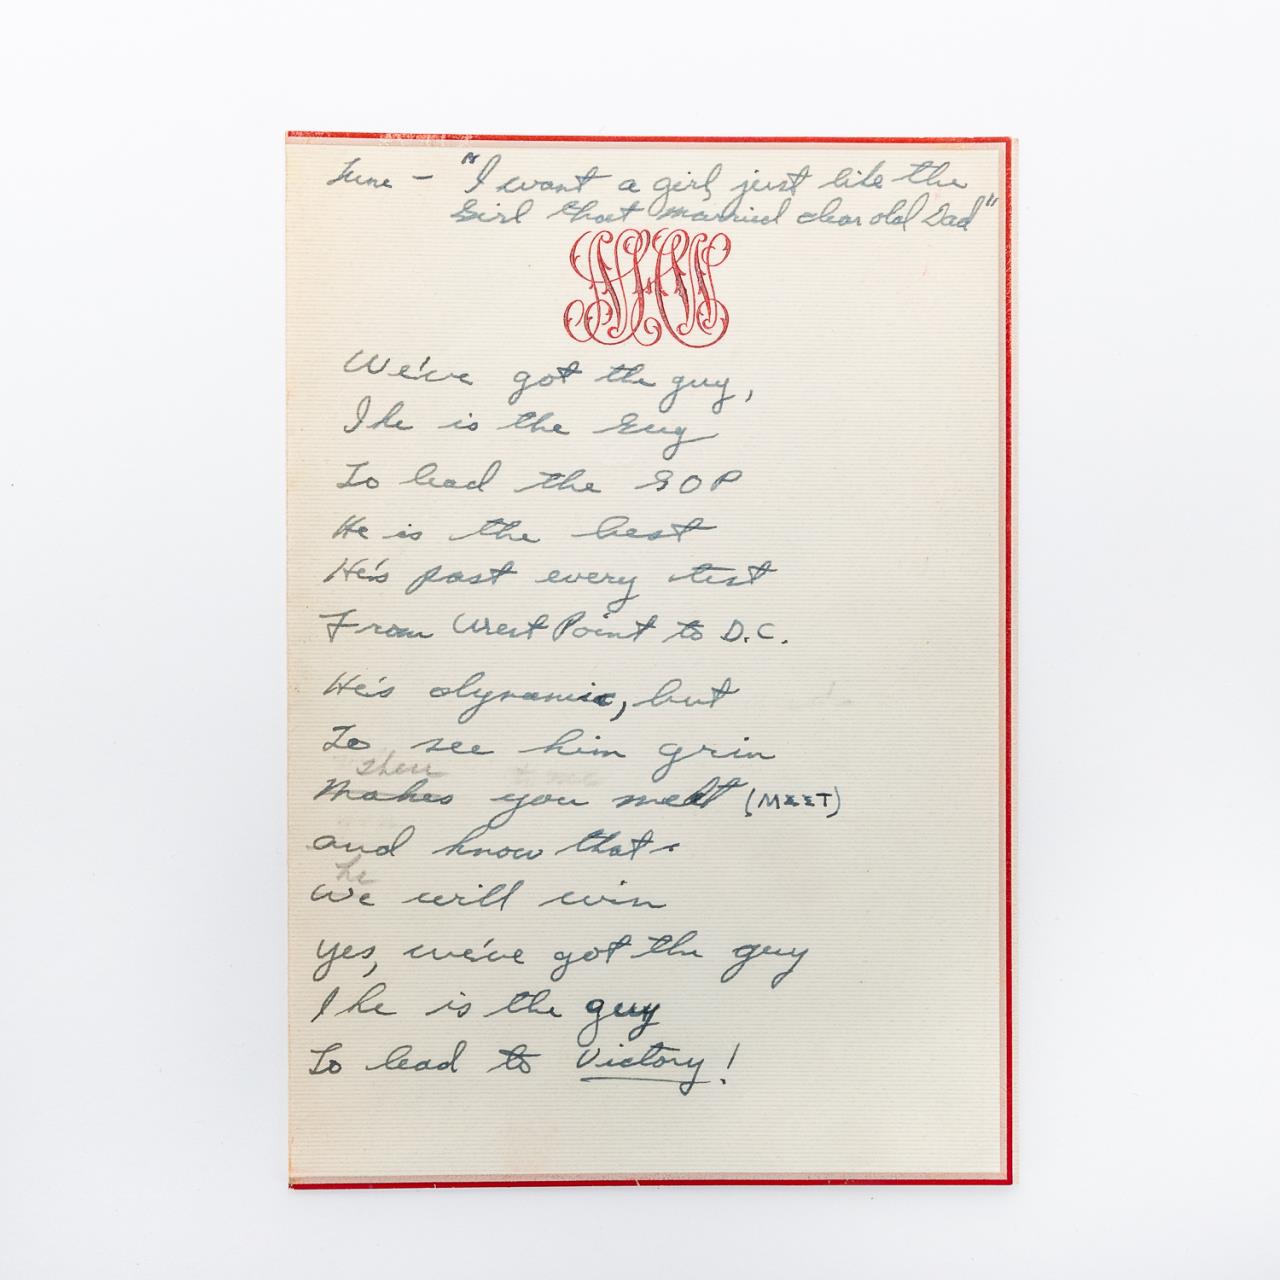 Tune - "I want a girl, just like the
Girl that married dear old Dad"
We've got the guy,
Ike is the Guy
To lead the GOP
He is the best
He's past every test
From West Point to D.C.
He's dynamic, but
To see him grin
Makes you melt (MEET)
and know that
he
We will win
yes, we've got the guy
Ike is the guy
To lead to Victory!